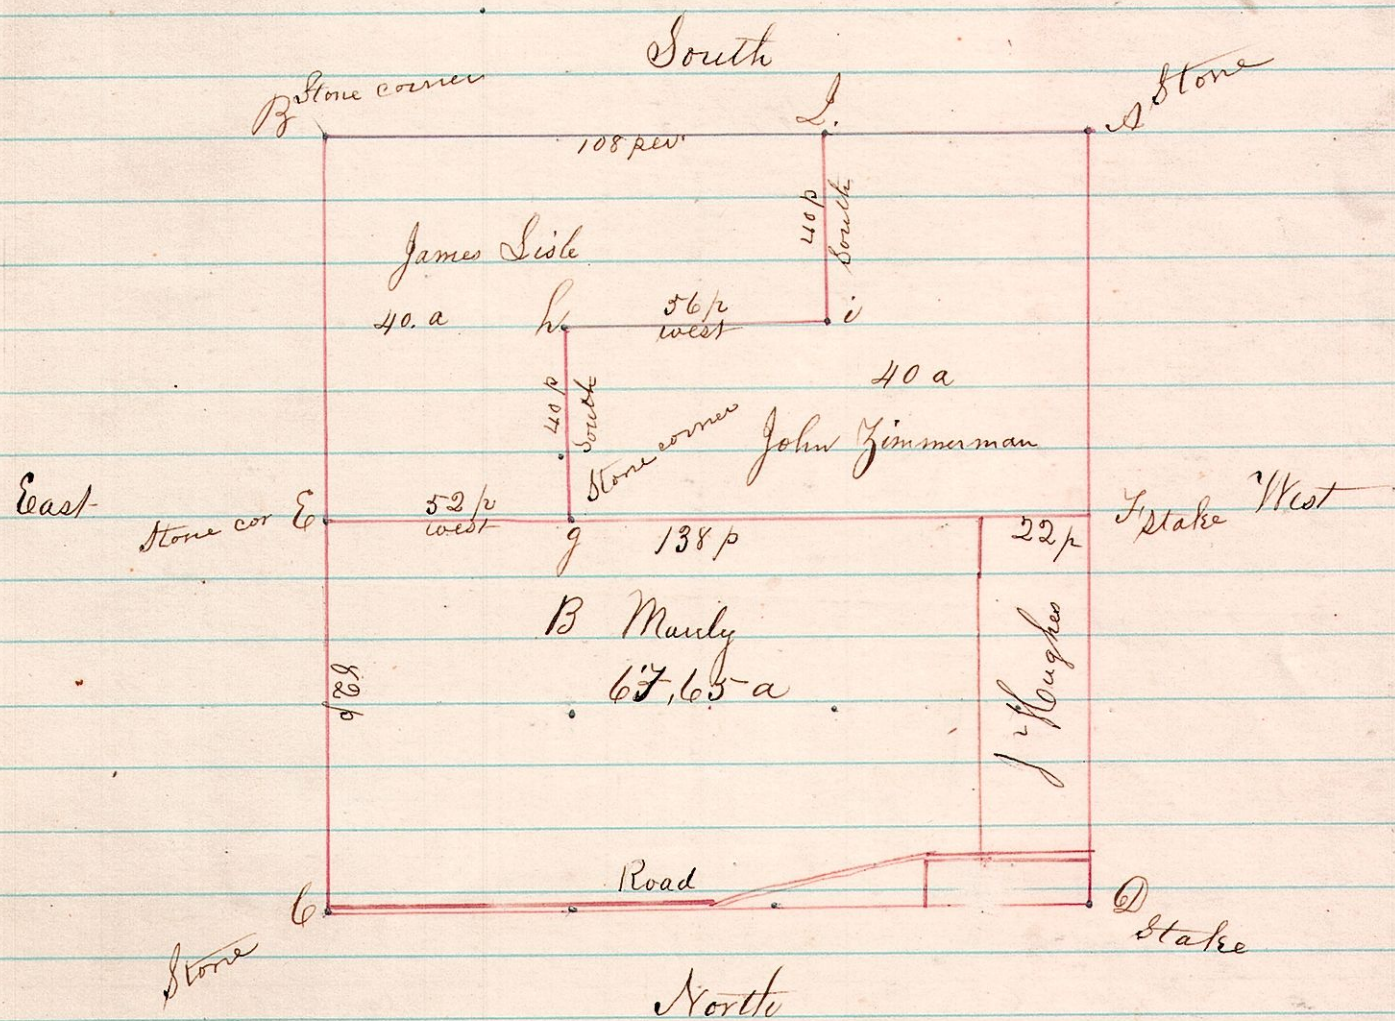 South
B Stone corner
I.
A Stone
108 per
40 p
South
James Lisle
40. a
h
56 p
west
i
40 a
40 p
South
Stone corner
John Zimmerman
East
Stone cor E
52 p
west
g
138 p
22 p
F Stake
West
B
67,65 a
82 p
J Hughes
Road
C
D
Stake
Stone
North